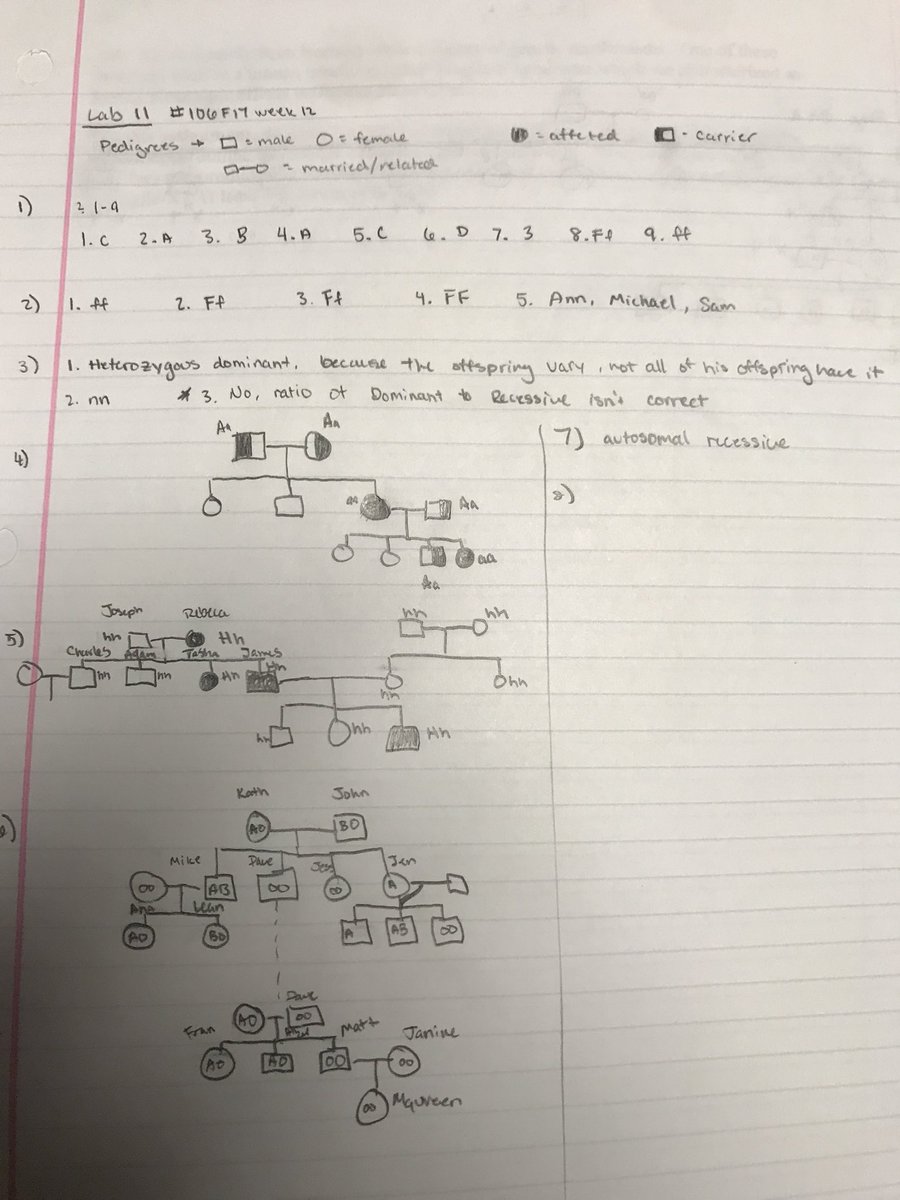 Lab 11 #106F17 week 12
Pedigrees → □ = male ○ = female ● = affected ■ - carrier
□-○ = married/related
1) 2, 1-9
1. C 2. A 3. B 4. A 5. C 6. D 7. 3 8. Ff 9. ff
2) 1. ff 2. Ff 3. Ff 4. FF 5. Ann, Michael, Sam
3) 1. Heterozygous dominant, because the offspring vary, not all of his offspring have it
2. nn * 3. No, ratio of Dominant to Recessive isn't correct
7) autosomal recessive
8)
4)
Aa Aa
aa Aa
aa
Aa
5)
Joseph Rebecca
hh Hh
Charles Adam Tasha James
hh hh Hh Hh
hh hh
hh hh
hh hh Hh
Kath John
AO BO
Mike Dave Jess Jen
OO AB OO OO A
Ana Lean
AO BO A AB OO
Dave
AO OO
Fran Matt Janine
AO AO OO OO
OO Maureen